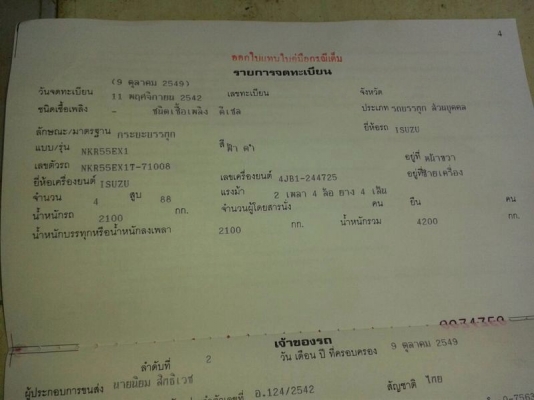 4
ออกใบแทนใบคู่มือกรณีเต็ม
รายการจดทะเบียน
(9 ตุลาคม 2549)
วันจดทะเบียน 11 พฤศจิกายน 2542 เลขทะเบียน จังหวัด
ชนิดเชื้อเพลิง - ชนิดเชื้อเพลิง ดีเซล ประเภท รถบรรทุก ส่วนบุคคล
ลักษณะ/มาตรฐาน กระบะบรรทุก ยี่ห้อรถ ISUZU
แบบ/รุ่น NKR55EX1 สี ฟ้า ดำ
เลขตัวรถ NKR55EX1T-71008 อยู่ที่
ยี่ห้อเครื่องยนต์ ISUZU เลขเครื่องยนต์ 4JB1-244725 อยู่ที่ซ้ายเครื่อง
จำนวน 4 สูบ 88 แรงม้า 2 เพลา 4 ล้อ ยาง 4 เส้น
น้ำหนักรถ 2100 กก. จำนวนผู้โดยสารนั่ง คน ยืน คน
น้ำหนักบรรทุกหรือน้ำหนักลงเพลา 2100 กก. น้ำหนักรวม 4200 กก.
เจ้าของรถ
ลำดับที่ 2 วัน เดือน ปี ที่ครอบครอง 9 ตุลาคม 2549
ผู้ประกอบการขนส่ง นายนิยม สิทธิเวช
อ.124/2542 สัญชาติ ไทย